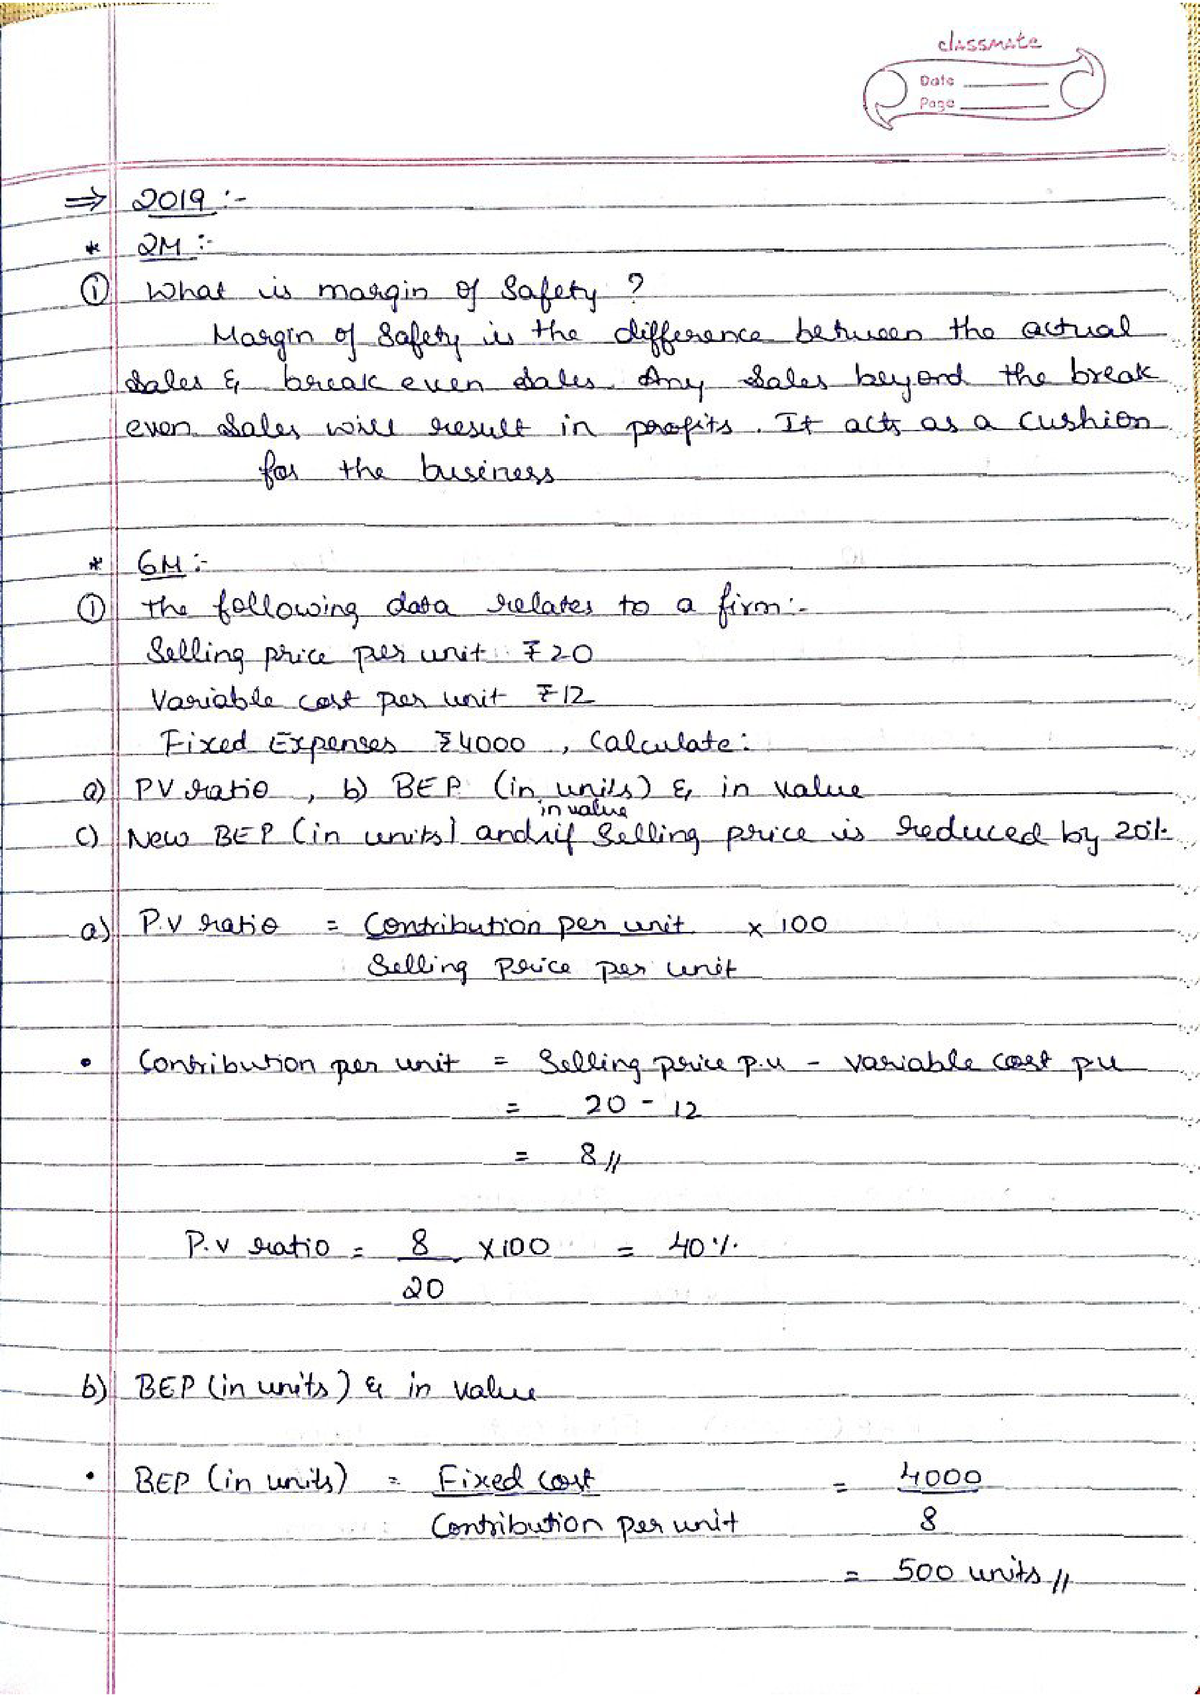 classmate
Date
Page
⇒ 2019 :-
* 2M :-
① What is margin of Safety ?
Margin of Safety is the difference between the actual
Sales & break even Sales. Any Sales beyond the break
even Sales will result in profits. It acts as a cushion
for the business
* 6M :-
① the following data relates to a firm:-
Selling price per unit ₹20
Variable cost per unit ₹12
Fixed Expenses ₹4000 , Calculate:
a) PV ratio , b) BEP (in units) & in value
in value
c) New BEP (in units) and if Selling price is reduced by 20%
a) P.V ratio = Contribution per unit x 100
Selling Price per unit
• Contribution per unit = Selling price p.u - variable cost pu
= 20 - 12
= 8//
P.v ratio = 8 x100 = 40%
20
b) BEP (in units) & in value
• BEP (in units) = Fixed cost = 4000
Contribution per unit 8
= 500 units //